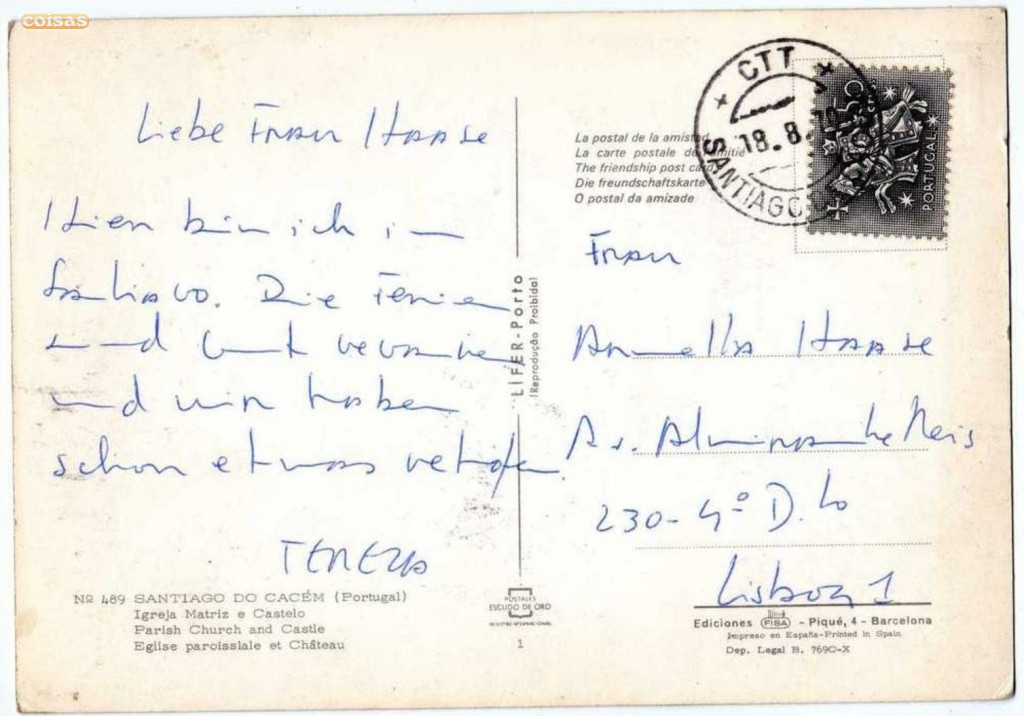 coisas
Liebe Frau Haase
Hier bin ich in
Santiago. Die Ferien
sind
und wir haben
schon etwas
TEREZA
Nº 489 SANTIAGO DO CACÉM (Portugal)
Igreja Matriz e Castelo
Parish Church and Castle
Eglise paroissiale et Château
LIFER - Porto
(Reprodução Proibida)
POSTALES
ESCUDO DE ORO
REGISTRO INTERNACIONAL
1
La postal de la amistad
La carte postale de l'amitié
The friendship post card
Die freundschaftskarte
O postal da amizade
CTT
18.8.70
SANTIAGO
PORTUGAL
Frau
Haase
Av. Almirante Reis
230-4º D.to
Lisboa 1
Ediciones FISA - Piqué, 4 - Barcelona
Impreso en España-Printed in Spain
Dep. Legal B. 7690-X